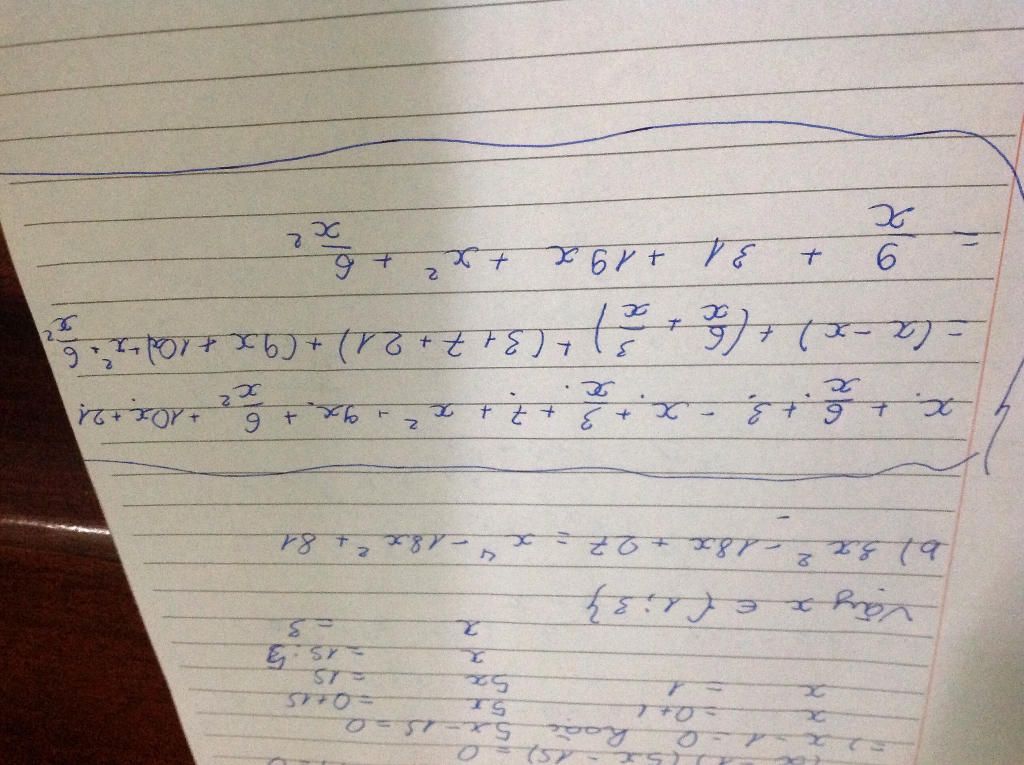 (x-1)(5x-15)=0
=> x-1=0 hoặc 5x-15=0
x =0+1 5x =0+15
x =1 5x =15
x =15:5
x =3
Vậy x ∈ {1;3}
b) 3x² - 18x + 27 = x⁴ - 18x² + 81
x + 6/x + 3 - x + 3/x + 7 + x² + 9x + 6/x² + 10x + 21
= (x-x) + (6/x + 3/x) + (3+7+21) + (9x+10x) + x² + 6/x²
= 9/x + 31 + 19x + x² + 6/x²